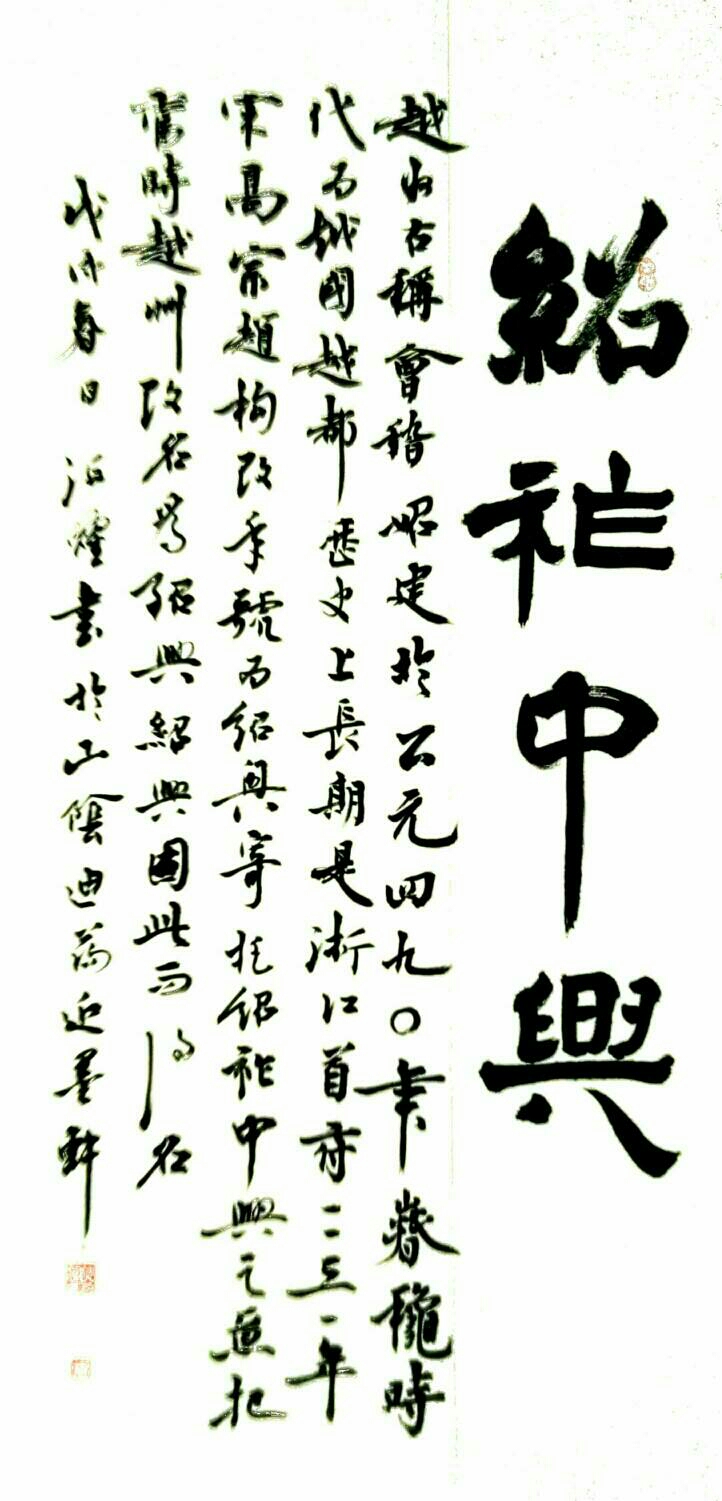 紹祚中興
越州古稱會稽始建於公元四九〇年萅穐時
代為越國越都歷史上長期是浙江首府一一三一年
宋高宗趙構改年號為紹興寄托紹祚中興之意把
當時越州改名為紹興紹興因此而得名
戊戌春日泊煌書於山陰迪蕩近墨軒